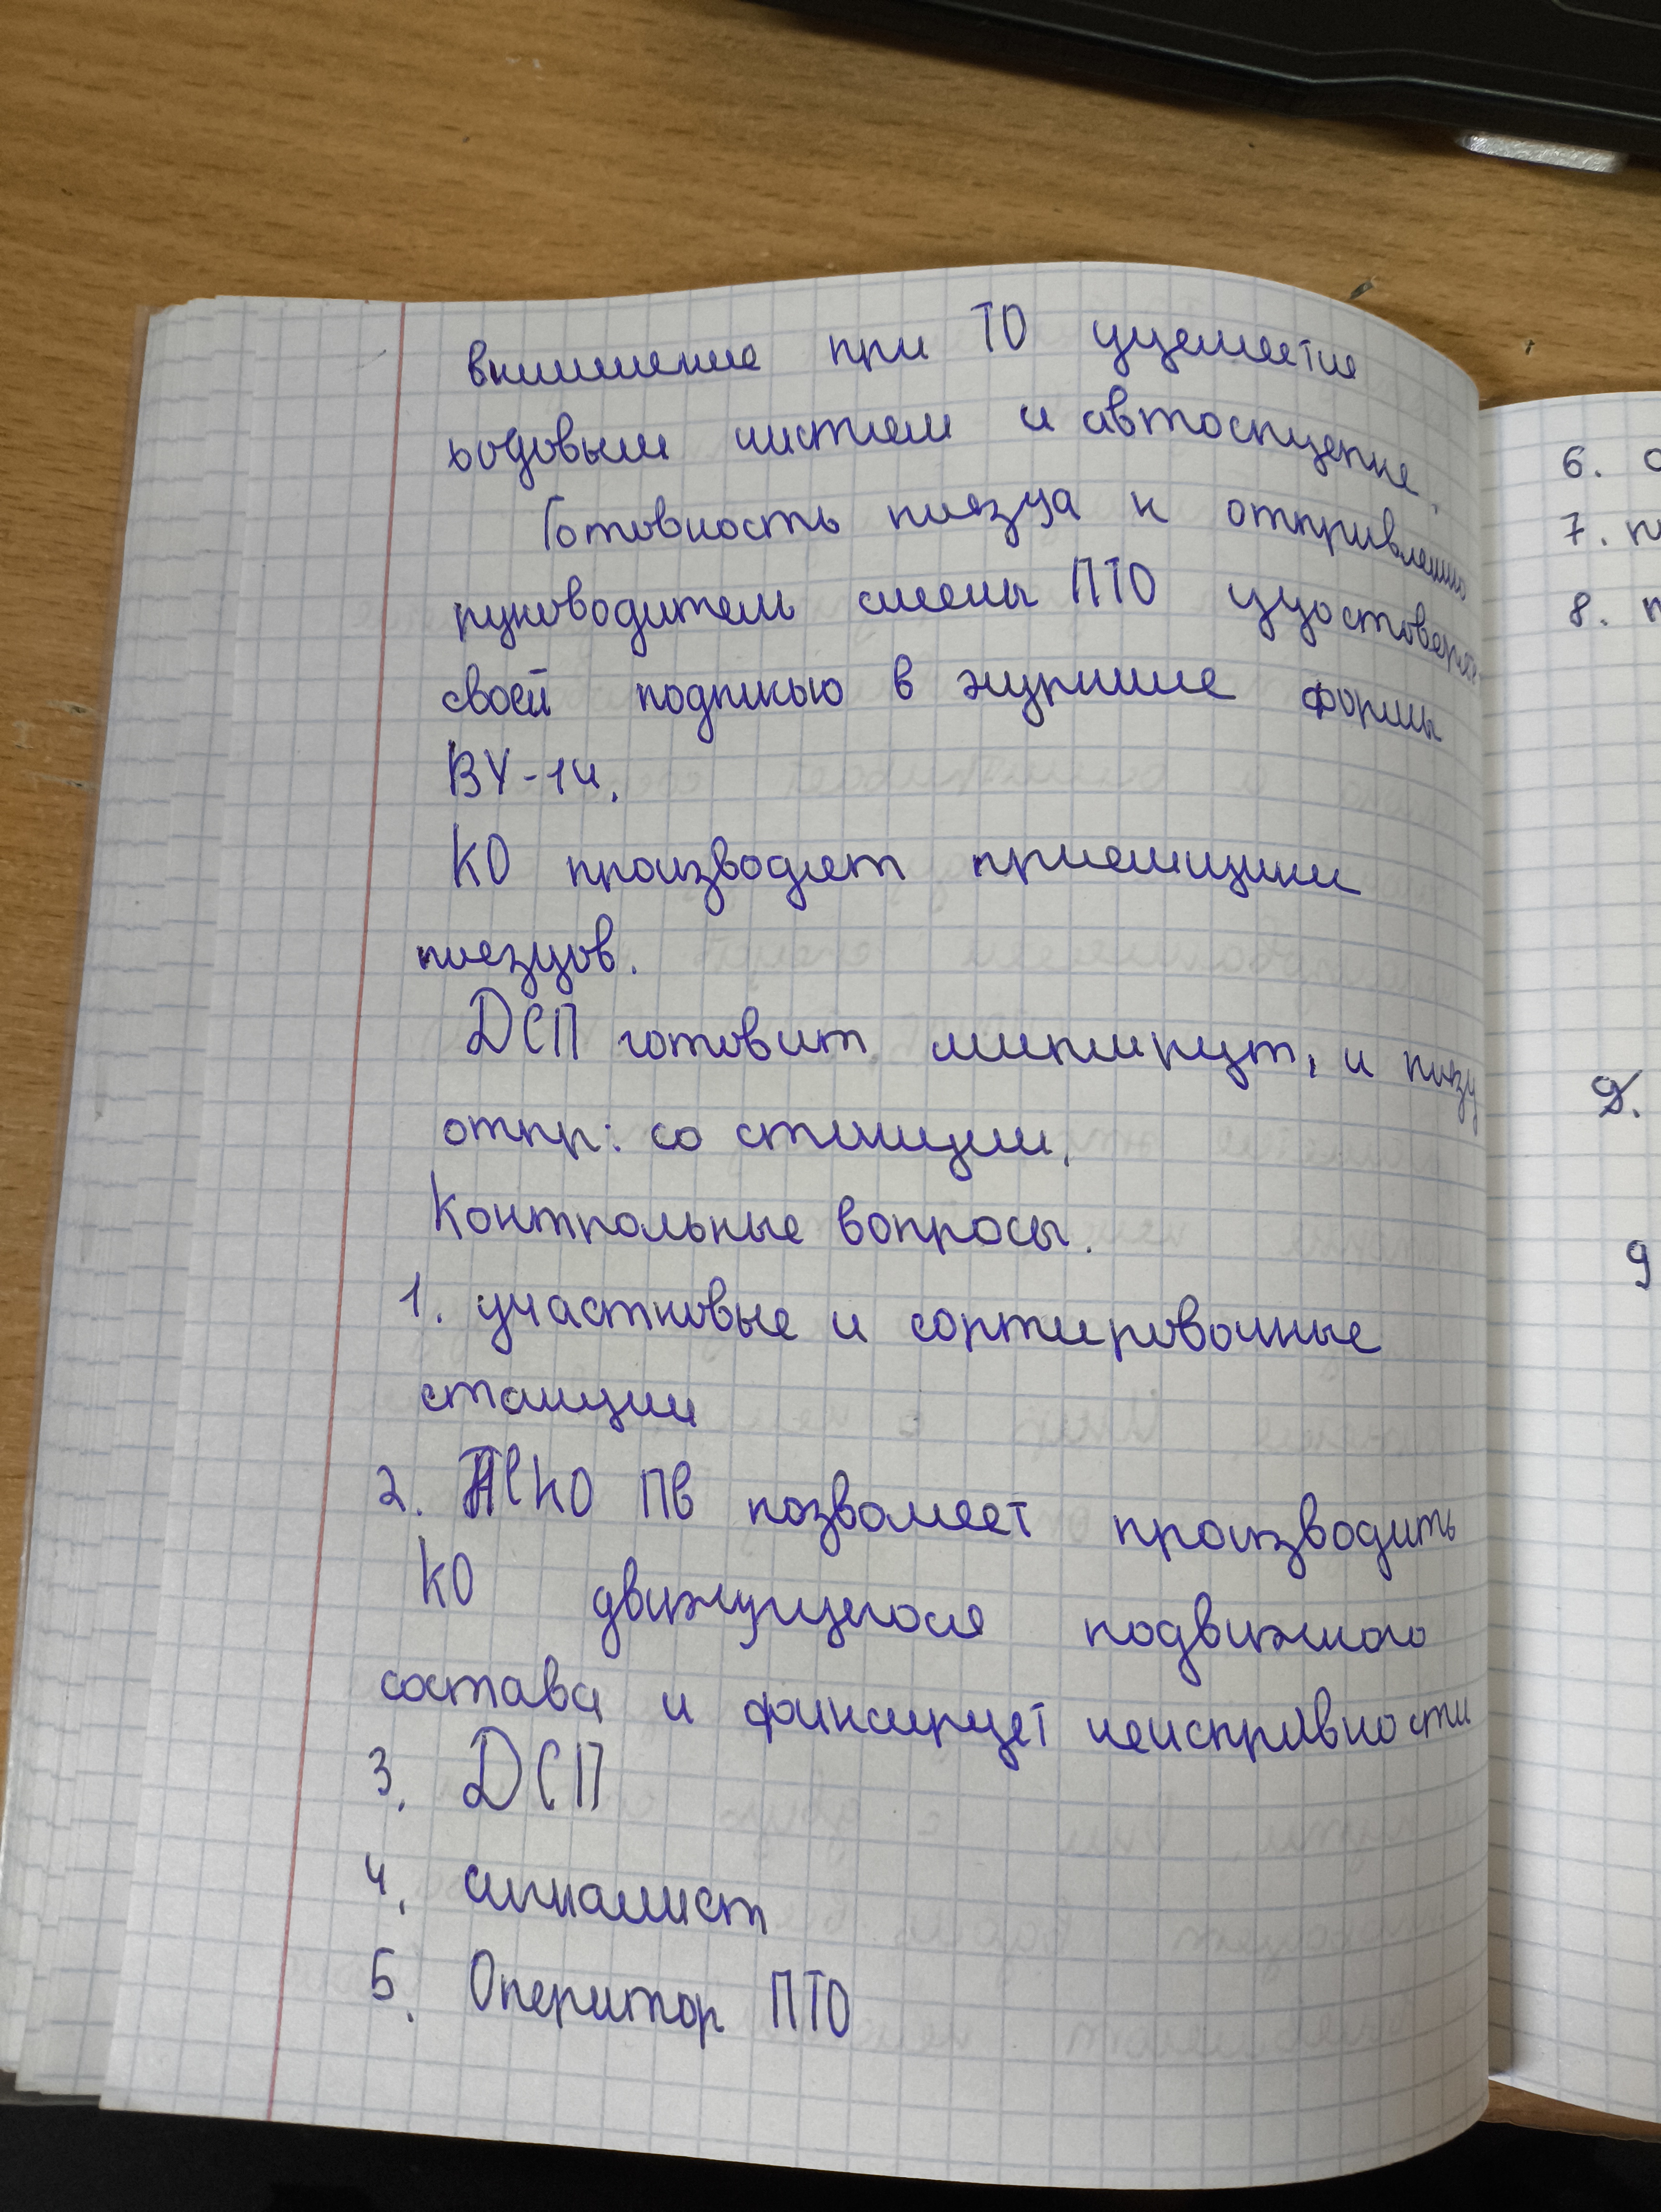 внимание при ТО уделяется
ходовым частям и автосцепке.
Готовность поезда к отправлению
руководитель смены ПТО удостоверяет
своей подписью в журнале формы
ВУ-14.
КО производят приемщики
поездов.
ДСП готовит маршрут, и поезд
отпр: со станции.
Контрольные вопросы.
1. участковые и сортировочные
станции
2. АСКО ПВ позволяет производить
КО движущегося подвижного
состава и фиксирует неисправности
3. ДСП
4. сигналист
5. Оператор ПТО
6. о
7. п
8. п
9.
9